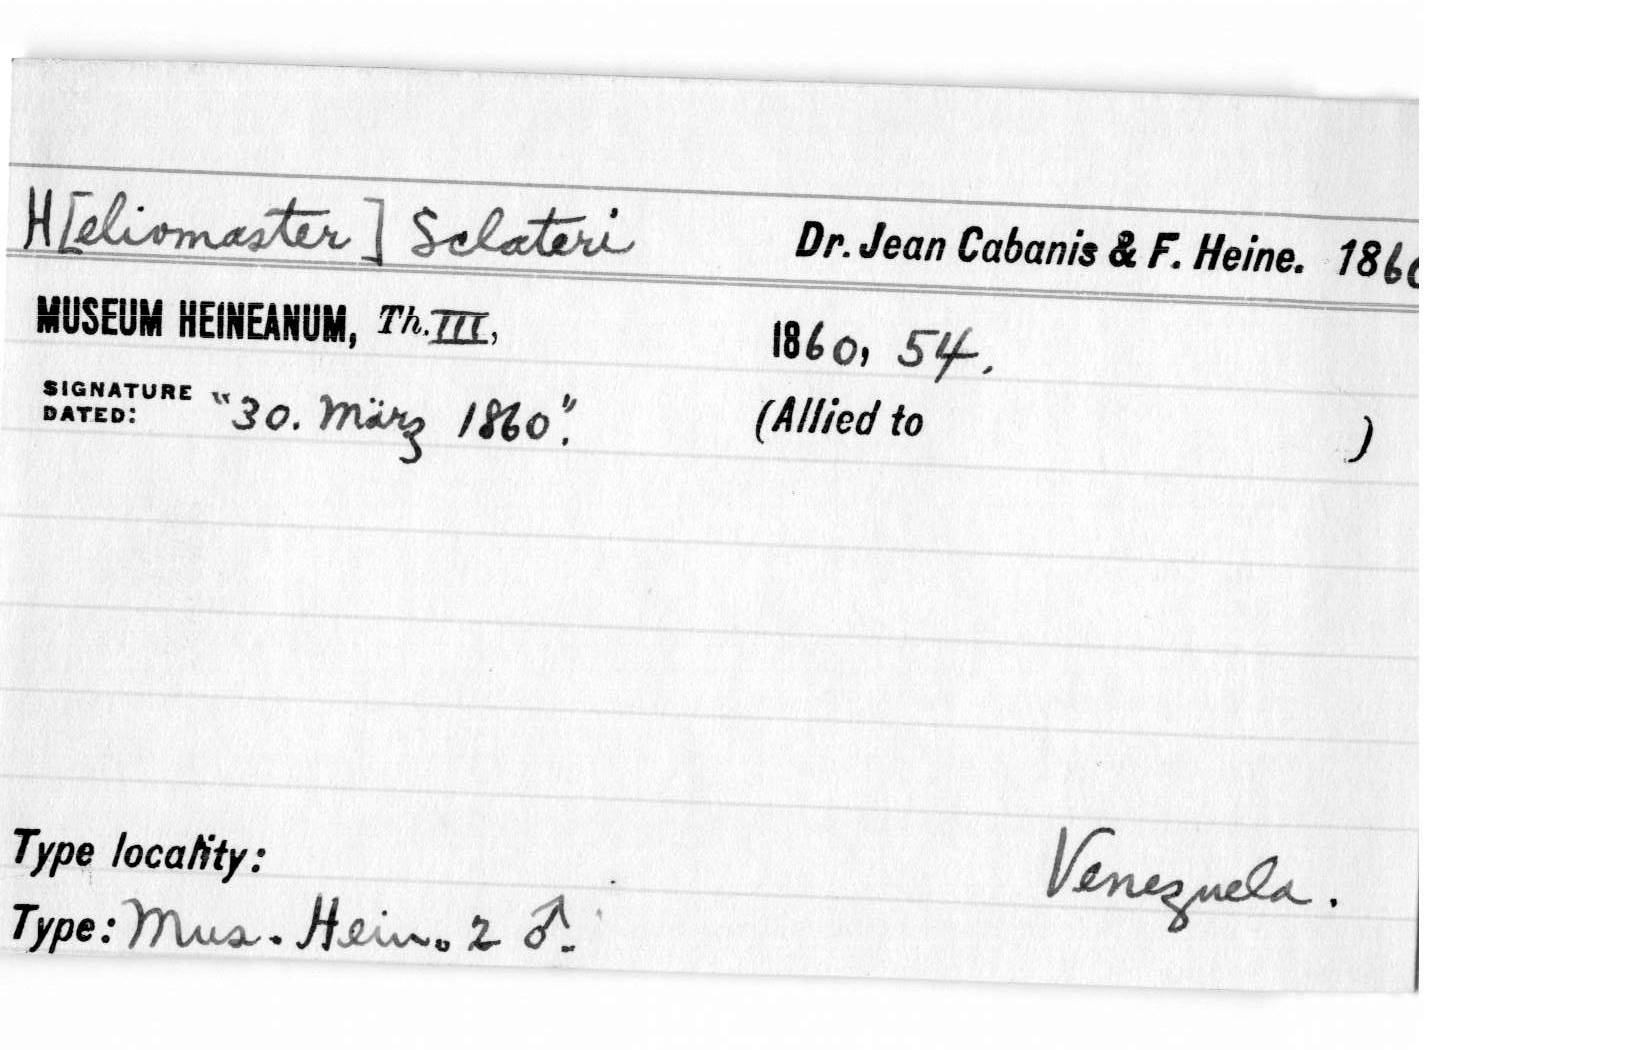 H[eliomaster] Sclateri Dr. Jean Cabanis & F. Heine. 1860
MUSEUM HEINEANUM, Th. III, 1860, 54.
SIGNATURE DATED: "30. März 1860". (Allied to )
Type locality: Venezuela.
Type: Mus. Hein. 2 ♂.